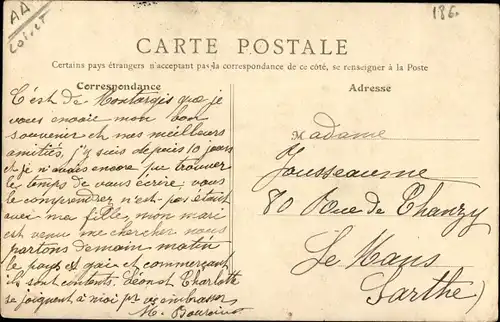 AA
Loiret
186
CARTE POSTALE
Certains pays étrangers n'acceptant pas la correspondance de ce côté, se renseigner à la Poste
Correspondance
Adresse
C'est de Montargis que je
vous envoie mon bon
souvenir et nos meilleurs
amitiés, j'y suis depuis 10 jours
et je n'avais encore pu trouver
le temps de vous écrire, vous
le comprendrez n'est-pas étant
avec ma fille, mon mari
est venu me chercher nous
partons demain matin
le pays est gai et commerçant
ils sont contents. Léonot Charlotte
se joignent à moi pr vs embrasser
M.
Madame
Jousseaume
80 Rue de Chanzy
Le Mans
Sarthe)